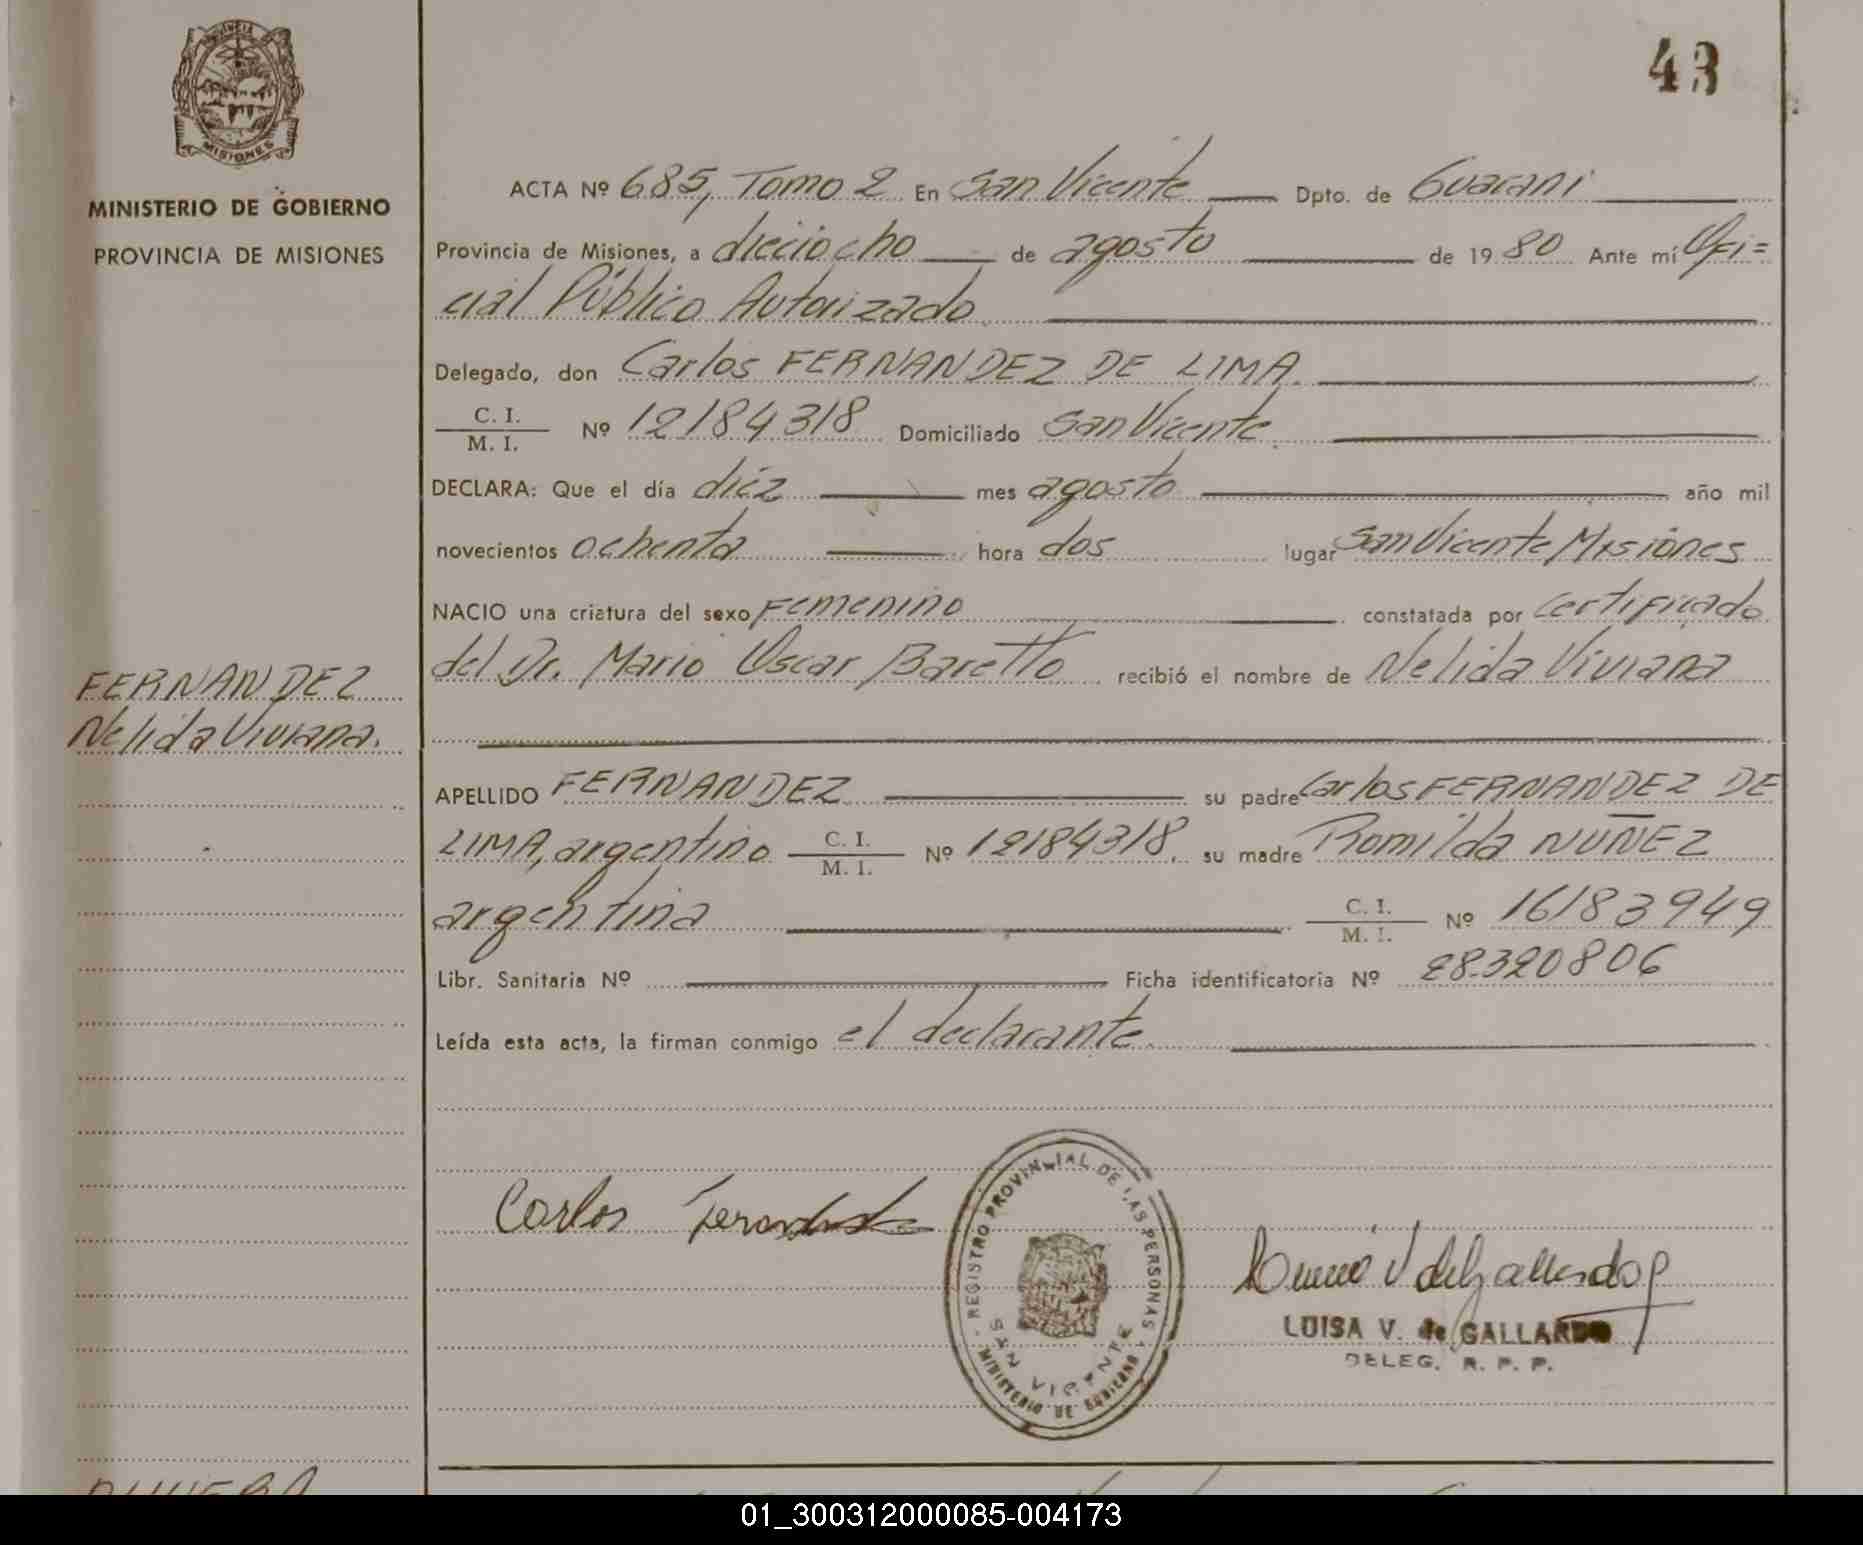 43
PROVINCIA
MISIONES
MINISTERIO DE GOBIERNO
PROVINCIA DE MISIONES
FERNANDEZ
Nelida Viviana.
ACTA Nº 685, Tomo 2 En San Vicente Dpto. de Guarani
Provincia de Misiones, a dieciocho de agosto de 1980 Ante mí Ofi=
cial Público Autorizado
Delegado, don Carlos FERNANDEZ DE LIMA.
C. I.
M. I.
Nº 12184318 Domiciliado San Vicente.
DECLARA: Que el día diez mes agosto año mil
novecientos ochenta hora dos lugar San Vicente Misiones
NACIO una criatura del sexo Femenino constatada por certificado
del Dr. Mario Oscar Baretto recibió el nombre de Nelida Viviana
APELLIDO FERNANDEZ su padre Carlos FERNANDEZ DE
LIMA, argentino C. I. M. I. Nº 12184318. su madre Romilda NUÑEZ
argentina C. I. M. I. Nº 16183949
Libr. Sanitaria Nº Ficha identificatoria Nº 28.320806
Leída esta acta, la firman conmigo el declarante.
Carlos
REGISTRO PROVINCIAL DE LAS PERSONAS
SAN VICENTE
MINISTERIO DE GOBIERNO
LUISA V. de GALLARDO
DELEG. R. P. P.
01_300312000085-004173